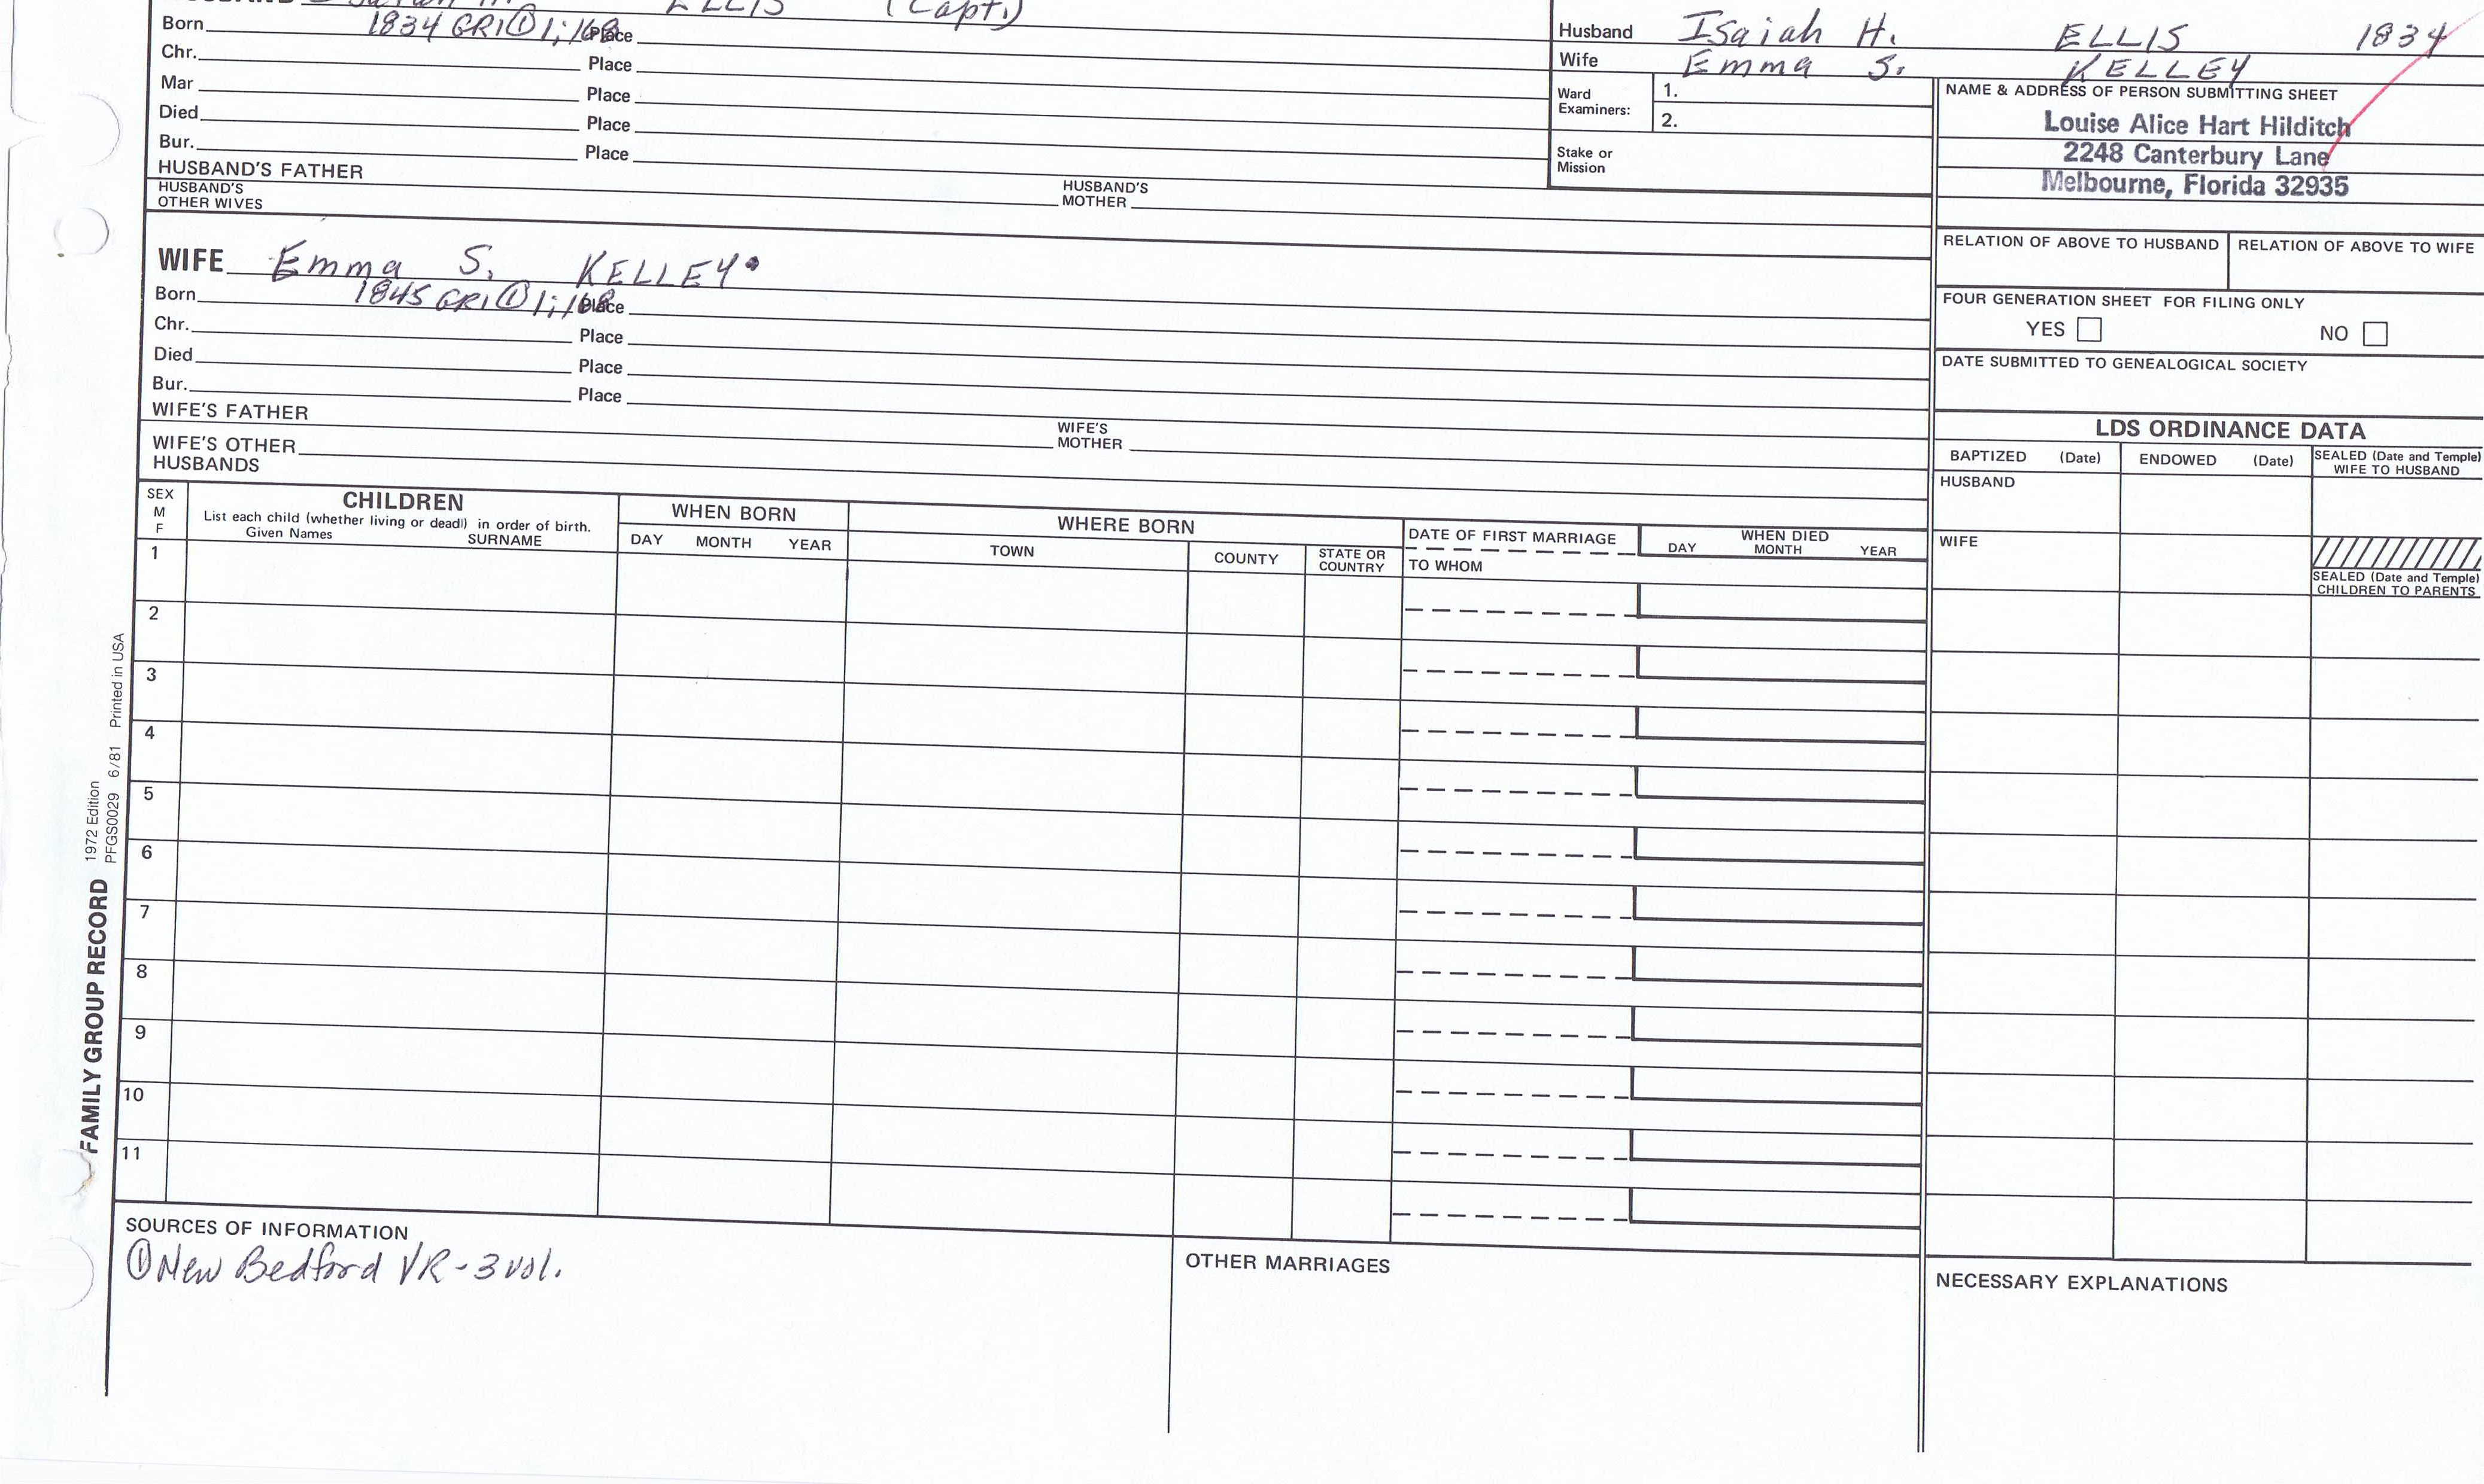 ELLIS (Capt.)
Born 1834 GR1 ① 1;168 Place
Chr. Place
Mar Place
Died Place
Bur. Place
HUSBAND'S FATHER
HUSBAND'S MOTHER
HUSBAND'S OTHER WIVES
Husband Isaiah H. ELLIS 1834
Wife Emma S. KELLEY
Ward Examiners: 1.
2.
Stake or Mission
NAME & ADDRESS OF PERSON SUBMITTING SHEET
Louise Alice Hart Hilditch
2248 Canterbury Lane
Melbourne, Florida 32935
RELATION OF ABOVE TO HUSBAND RELATION OF ABOVE TO WIFE
FOUR GENERATION SHEET FOR FILING ONLY
YES NO
DATE SUBMITTED TO GENEALOGICAL SOCIETY
WIFE Emma S. KELLEY
Born 1845 GR1 ① 1;168 Place
Chr. Place
Died Place
Bur. Place
WIFE'S FATHER
WIFE'S MOTHER
WIFE'S OTHER HUSBANDS
LDS ORDINANCE DATA
BAPTIZED (Date) ENDOWED (Date) SEALED (Date and Temple) WIFE TO HUSBAND
HUSBAND
WIFE
SEALED (Date and Temple) CHILDREN TO PARENTS
SEX M F
CHILDREN
List each child (whether living or dead) in order of birth.
Given Names SURNAME
WHEN BORN
DAY MONTH YEAR
WHERE BORN
TOWN COUNTY STATE OR COUNTRY
DATE OF FIRST MARRIAGE
TO WHOM
WHEN DIED
DAY MONTH YEAR
1
2
3
4
5
6
7
8
9
10
11
FAMILY GROUP RECORD 1972 Edition
PFGS0029 6/81 Printed in USA
SOURCES OF INFORMATION
① New Bedford VR - 3 vol.
OTHER MARRIAGES
NECESSARY EXPLANATIONS